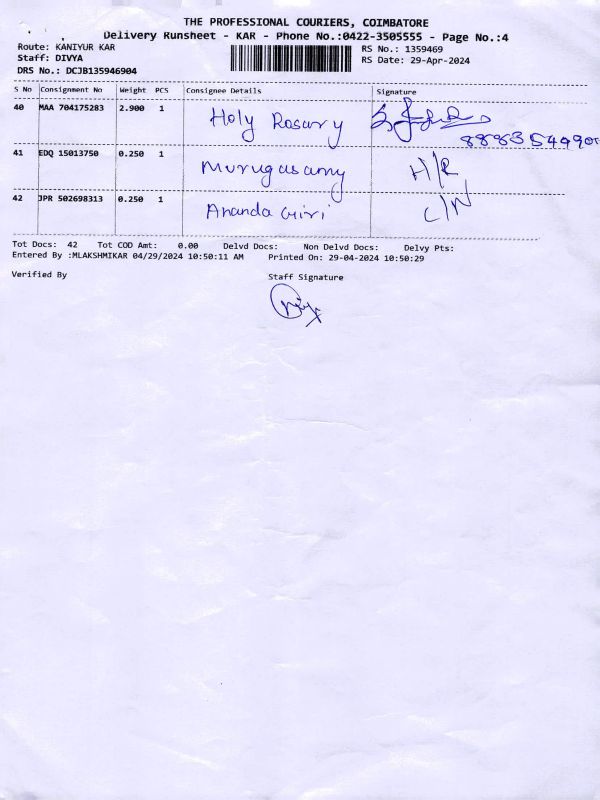 THE PROFESSIONAL COURIERS, COIMBATORE
Delivery Runsheet - KAR - Phone No.:0422-3505555 - Page No.:4
Route: KANIYUR KAR
RS No.: 1359469
Staff: DIVYA
RS Date: 29-Apr-2024
DRS No.: DCJB135946904
S No Consignment No Weight PCS Consignee Details Signature
40 MAA 704175283 2.900 1 Holy Rosary
41 EDQ 15013750 0.250 1 Murugasamy H/R
42 JPR 502698313 0.250 1 Ananda Giri C/N
Tot Docs: 42 Tot COD Amt: 0.00 Delvd Docs: Non Delvd Docs: Delvy Pts:
Entered By :MLAKSHMIKAR 04/29/2024 10:50:11 AM Printed On: 29-04-2024 10:50:29
Verified By Staff Signature